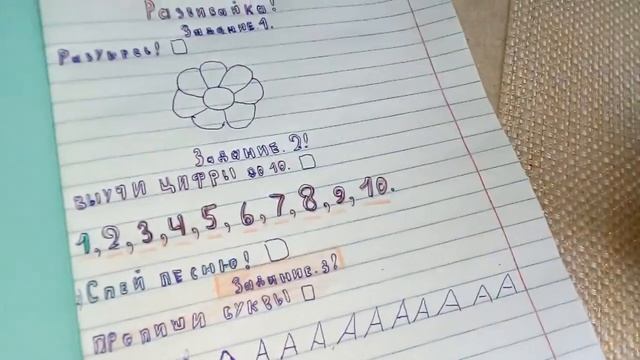 Развивайка!
Задание 1.
Разукрась! 
Задание. 2!
ВЫУЧИ ЦИФРЫ до 10.
1, 2, 3, 4, 5, 6, 7, 8, 9, 10.
Спой песню!
Задание. 3!
ПРОПИШИ БУКВЫ
А А А А А А А А А А